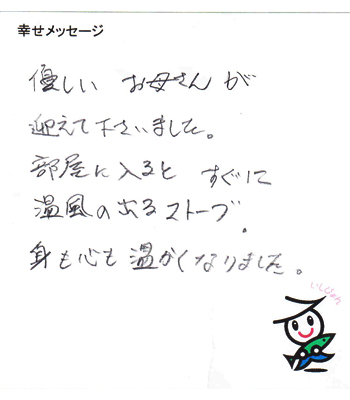 幸せメッセージ
優しい お母さんが
迎えて下さいました。
部屋に入ると すぐに
温風の出るストーブ。
身も心も温かくなりました。